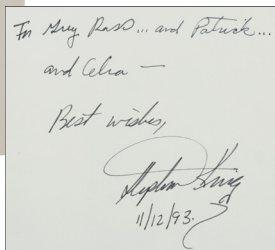 For Greg Rass... and Patrick...
and Celia —
Best wishes,
Stephen King
11/12/93.